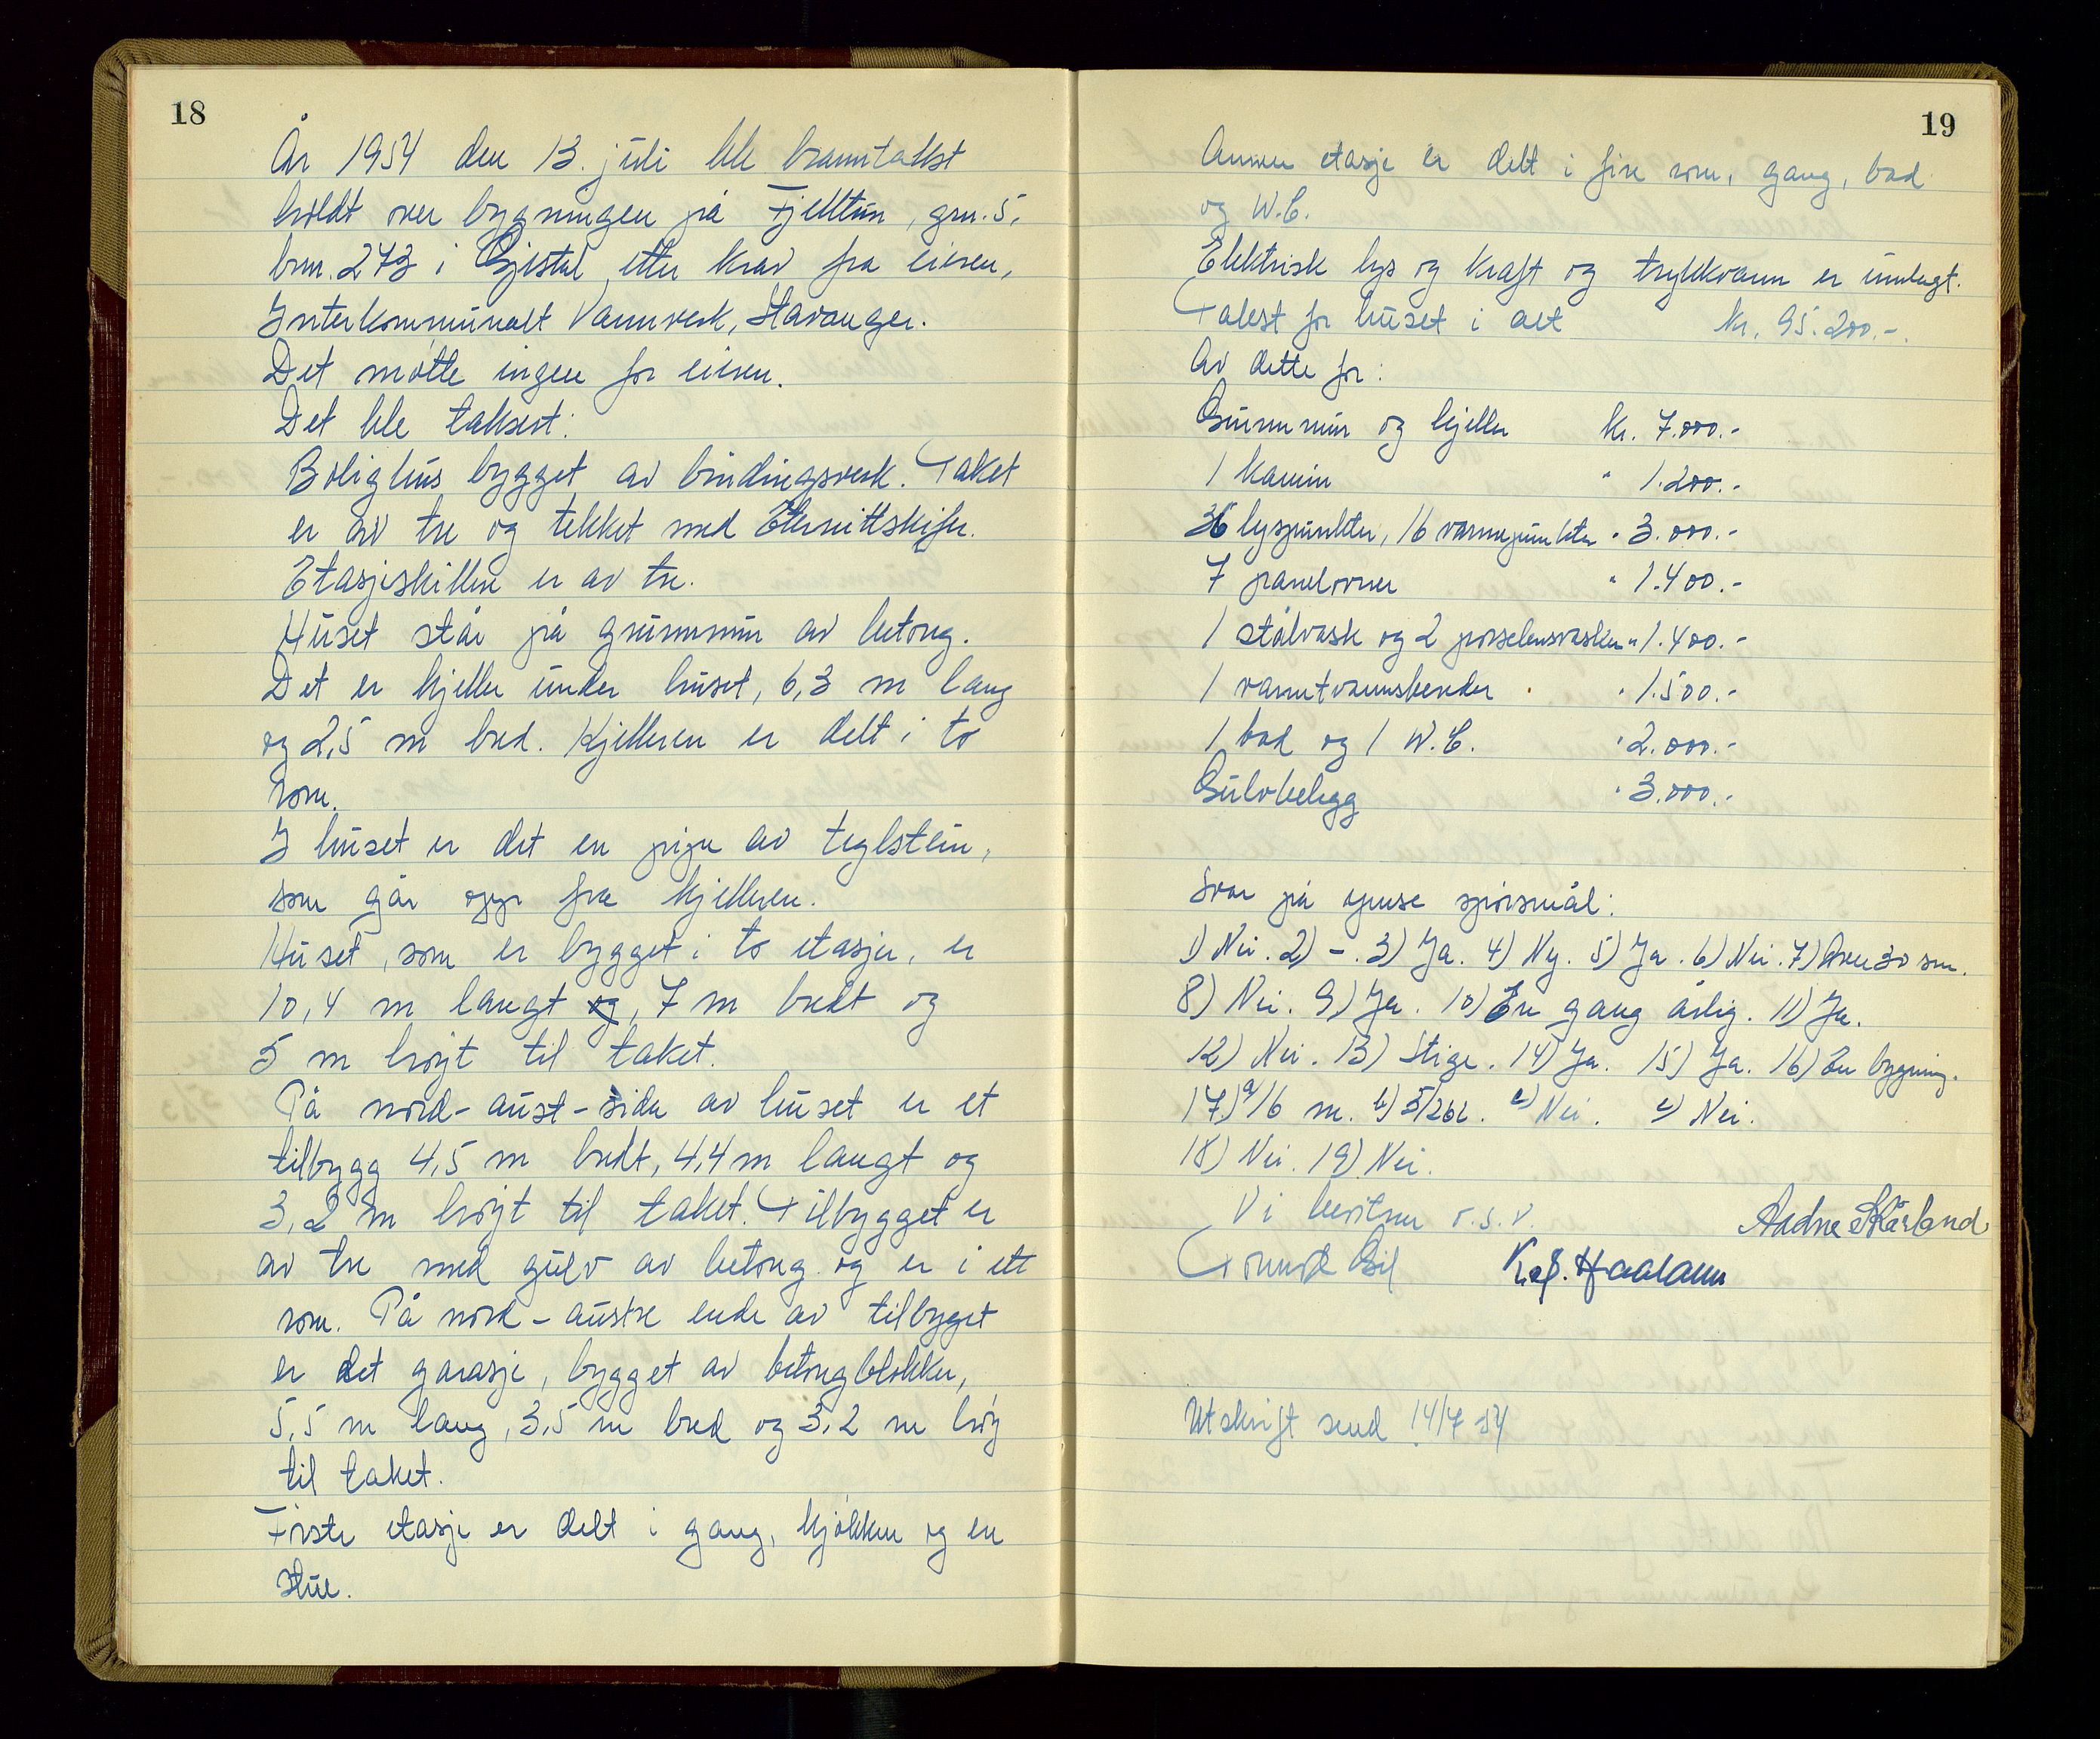 18
År 1954 den 13. juli ble branntakst
holdt over bygningen på Fjelltun, grn. 5,
brn. 273 i Gjestal etter krav fra eieren,
Interkommunalt Vannverk, Stavanger.
Det møtte ingen for eieren.
Det ble taksert:
Bolighus bygget av bindingsverk. Taket
er av tre og tekket med Eternittskifer.
Etasjeskillene er av tre.
Huset står på grunnmur av betong.
Det er kjeller under huset, 6,3 m lang
og 2,5 m bred. Kjelleren er delt i to
rom.
I huset er det en pipe av teglstein,
som går opp fra kjelleren.
Huset, som er bygget i to etasjer, er
10,4 m langt og, 7 m bredt og
5 m høyt til taket.
På nord-aust-sida av huset er et
tilbygg 4,5 m bredt, 4,4 m langt og
3,2 m høyt til taket. Tilbygget er
av tre med gulv av betong og er i ett
rom. På nord-austre ende av tilbyget
er det garasje, bygget av betongblokker,
5,5 m lang, 3,5 m bred og 3,2 m høy
til taket.
Første etasje er delt i gang, kjøkken og en
stue.
19
Annen etasje er delt i fire rom, gang, bad
og W.C.
Elektrisk lys og kraft og trykkvann er innlagt.
Takst for huset i alt kr. 95.200.-
Av dette for:
Grunnmur og kjeller kr. 7.000.-
1 kamin " 1.200.-
36 lyspunkter, 16 varmepunkter " 3.000.-
7 panelovner " 1.400.-
1 stålvask og 2 porselensvasker " 1.400.-
1 varmtvannsbereder " 1.500.-
1 bad og 1 W.C. " 2.000.-
Gulvbelegg " 3.000.-
Svar på spørsmål:
1) Nei. 2) -. 3) Ja. 4) Ny. 5) Ja. 6) Nei. 7) Over 30 sm.
8) Nei. 9) Ja. 10) En gang årlig. 11) Ja.
12) Nei. 13) Stige. 14) Ja. 15) Ja. 16) En bygning.
17) a) 16 m. b) 5/262. c) Nei. e) Nei.
18) Nei. 19) Nei.
Vi bevitner o.s.v. Aadne Skårland
Trond Gil K. S. Haaland
Utskrift send 14/7 54